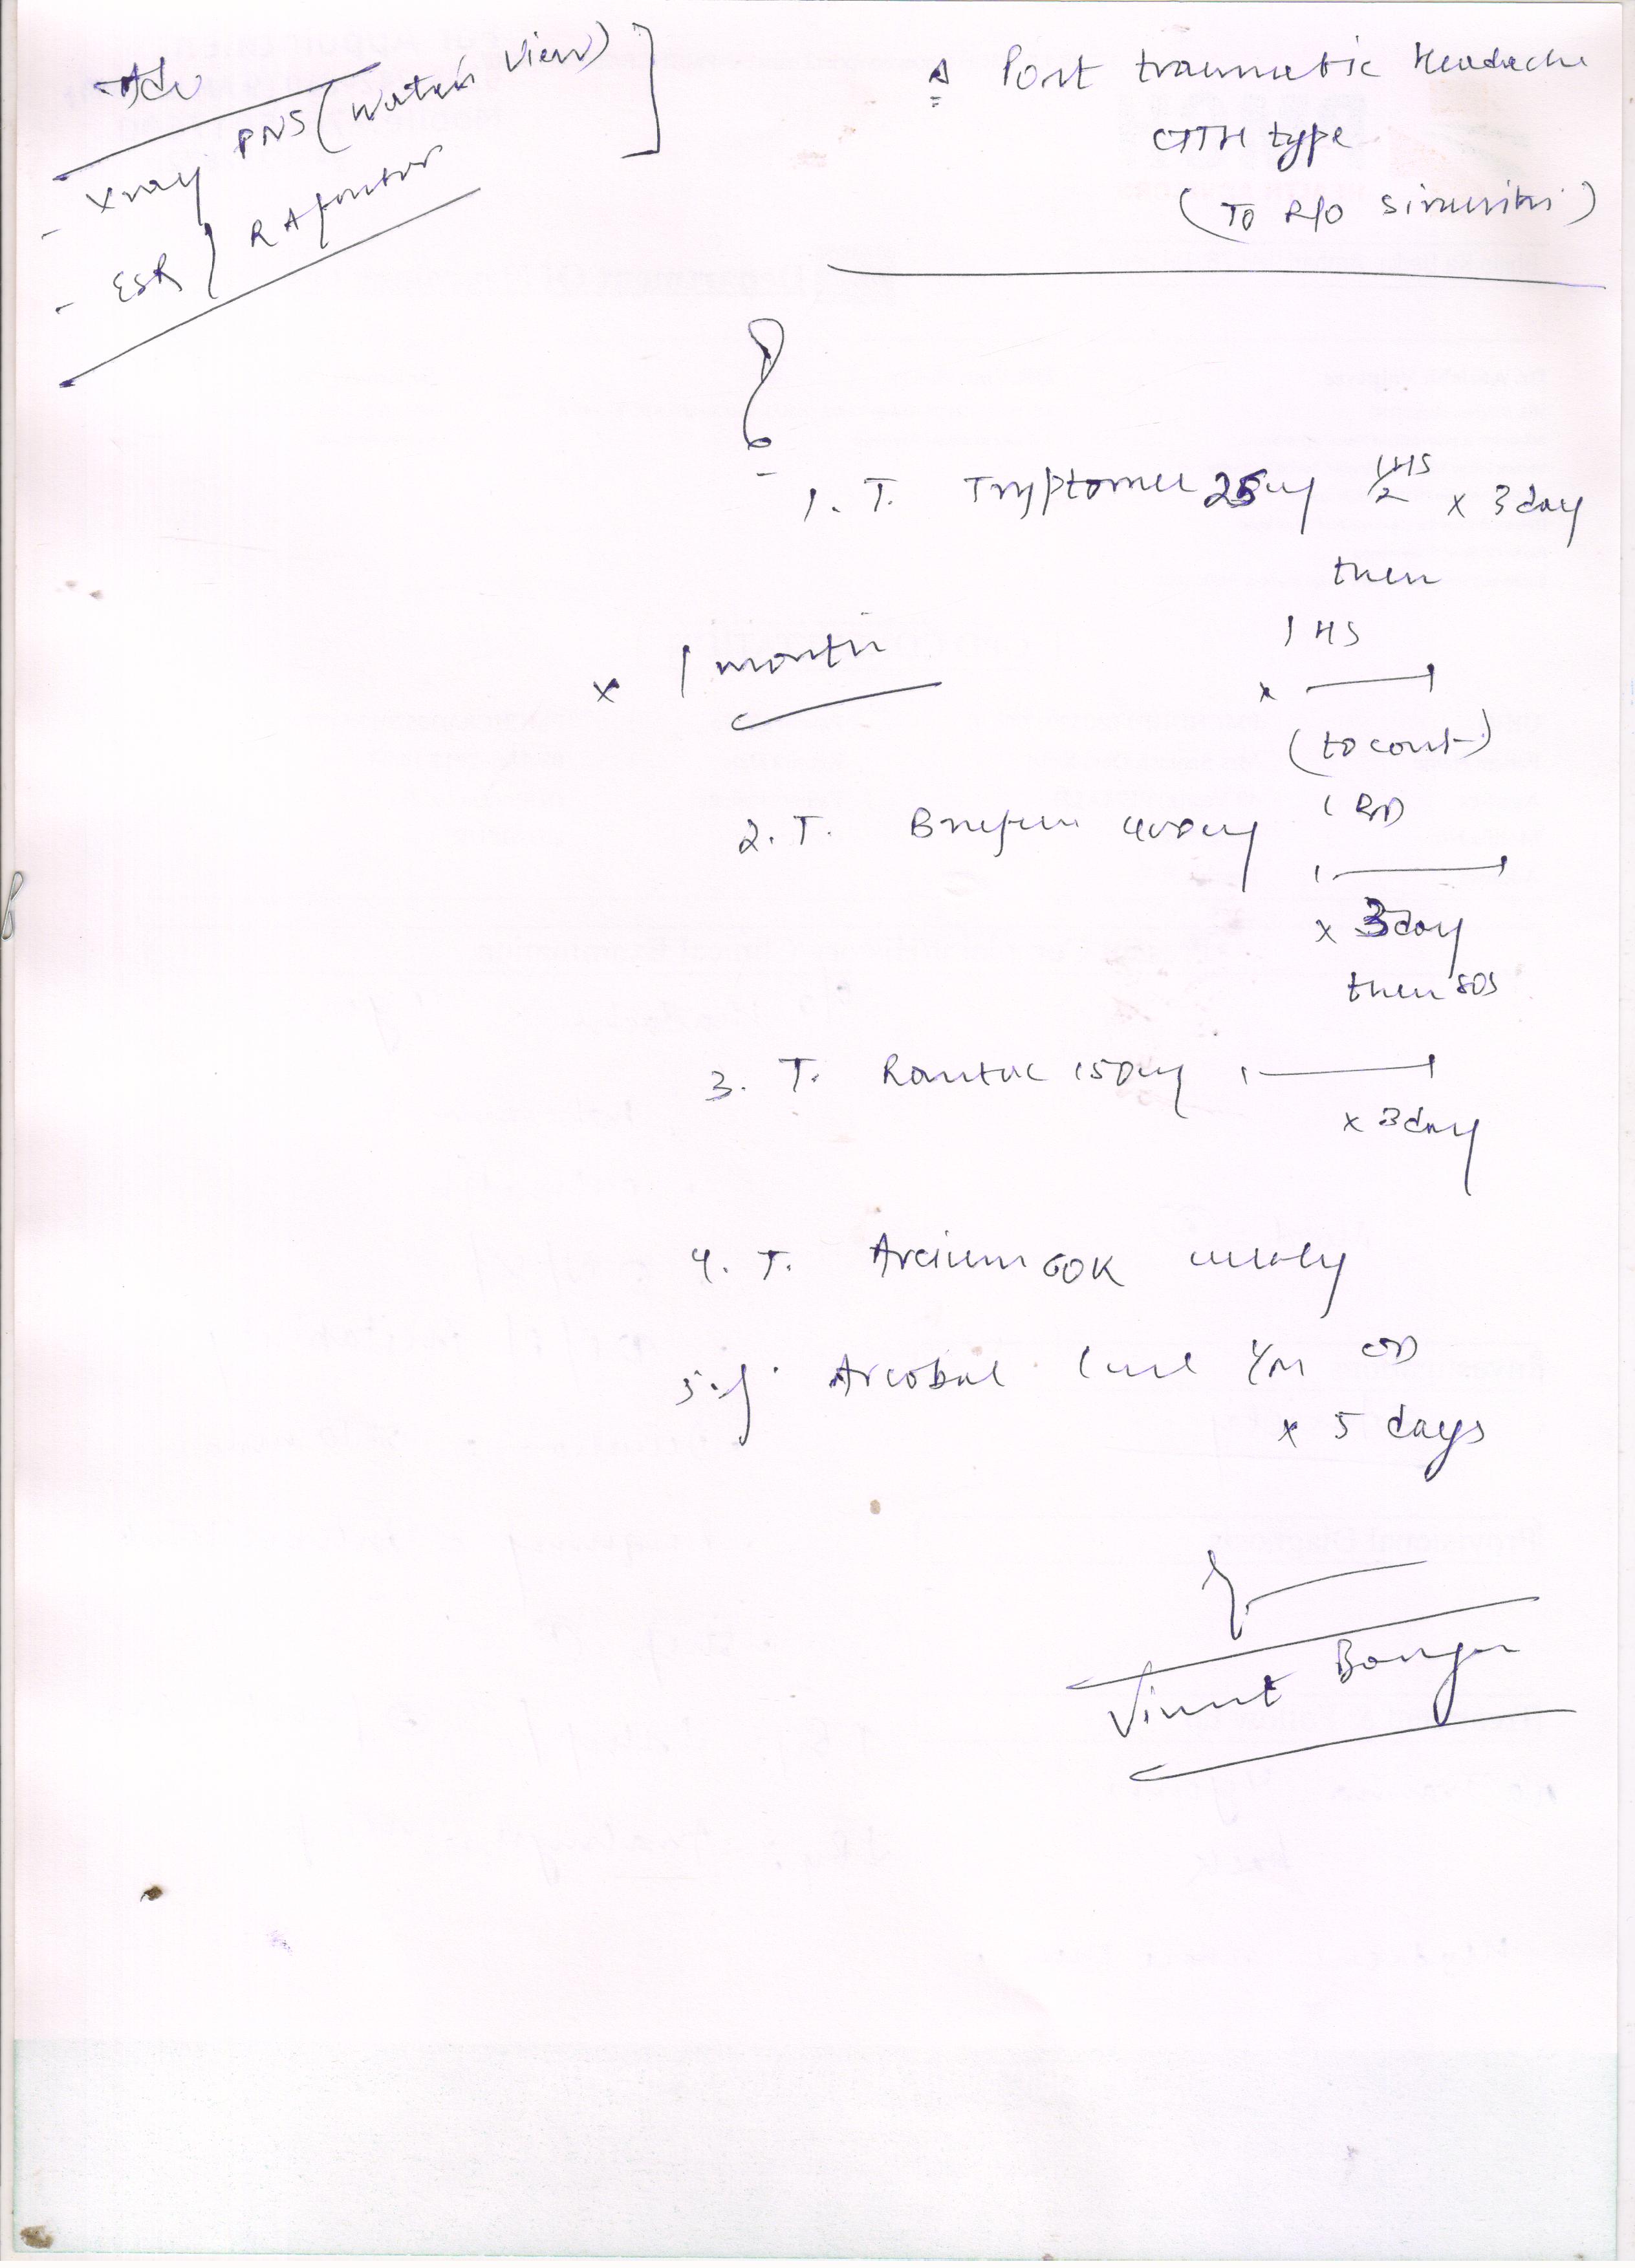 Adv
- Xray PNS (Water's View)
- ESR / RA factor
Δ Post traumatic Headache
CTTH type
(To R/O Sinusitis)
1. T. Tryptomer 25mg 1/2 HS x 3 day
then
1 HS
x
(to cont)
x 1 month
2. T. Brufen 400mg 1 BD
x 3 day
then SOS
3. T. Rantac 150mg
x 3 day
4. T. Arcium 60K weekly
5. J. Arcobal 1 ml I/M OD
x 5 days